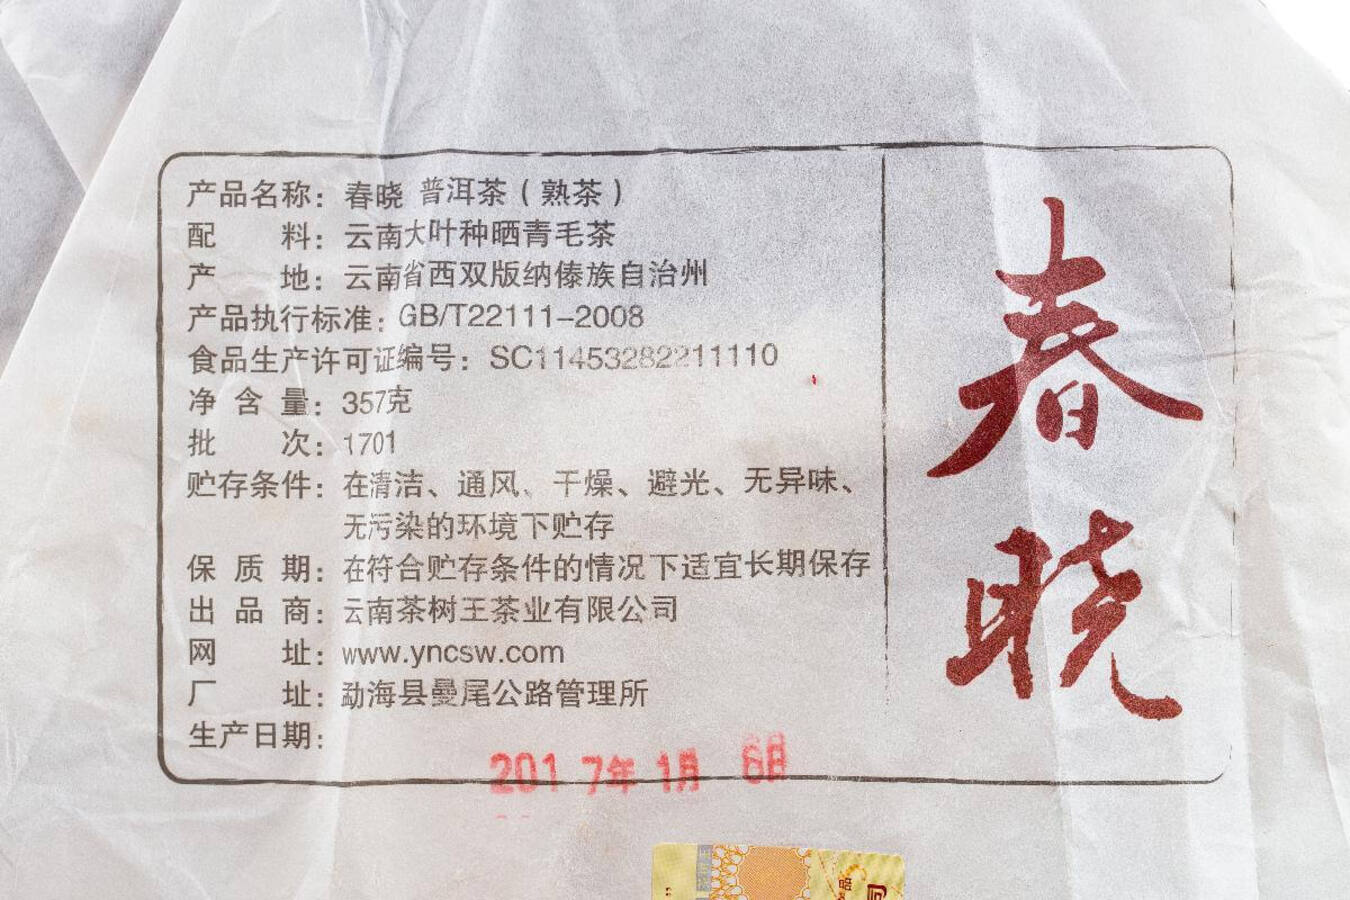 产品名称：春晓 普洱茶（熟茶）
配 料：云南大叶种晒青毛茶
产 地：云南省西双版纳傣族自治州
产品执行标准：GB/T22111-2008
食品生产许可证编号：SC11453282211110
净 含 量：357克
批 次：1701
贮存条件：在清洁、通风、干燥、避光、无异味、
无污染的环境下贮存
保 质 期：在符合贮存条件的情况下适宜长期保存
出 品 商：云南茶树王茶业有限公司
网 址：www.yncsw.com
厂 址：勐海县曼尾公路管理所
生产日期：
2017年 1月 6日
春晓
品
司